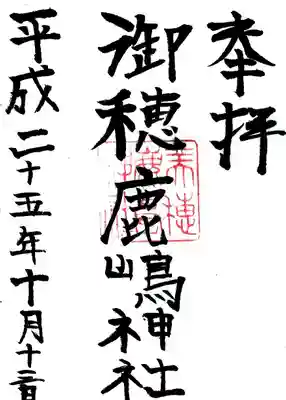 奉拝
御穂鹿嶋神社
平成二十五年十月十三日